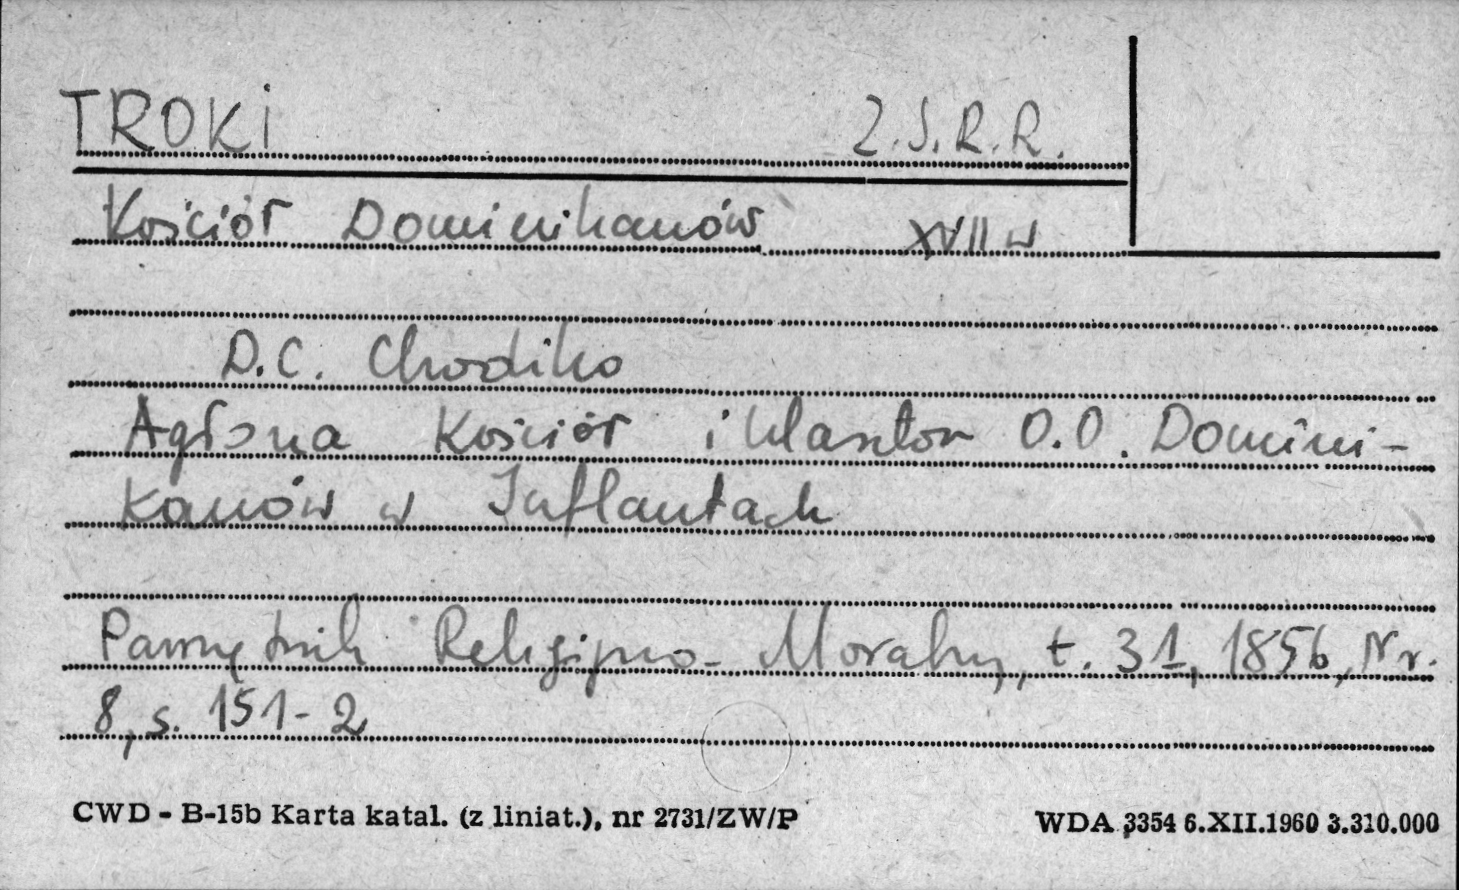 TROKI Z.S.R.R.
Kościół Dominikanów XVII w
D.C. Chodźko
Agłona Kościół i klasztor O.O. Domini-
kanów w Inflantach
Pamiętnik Religijno-Moralny, t. 31, 1856, Nr.
8, s. 151-2
CWD - B-15b Karta katal. (z liniat.), nr 2731/ZW/P WDA 3354 6.XII.1960 3.310.000